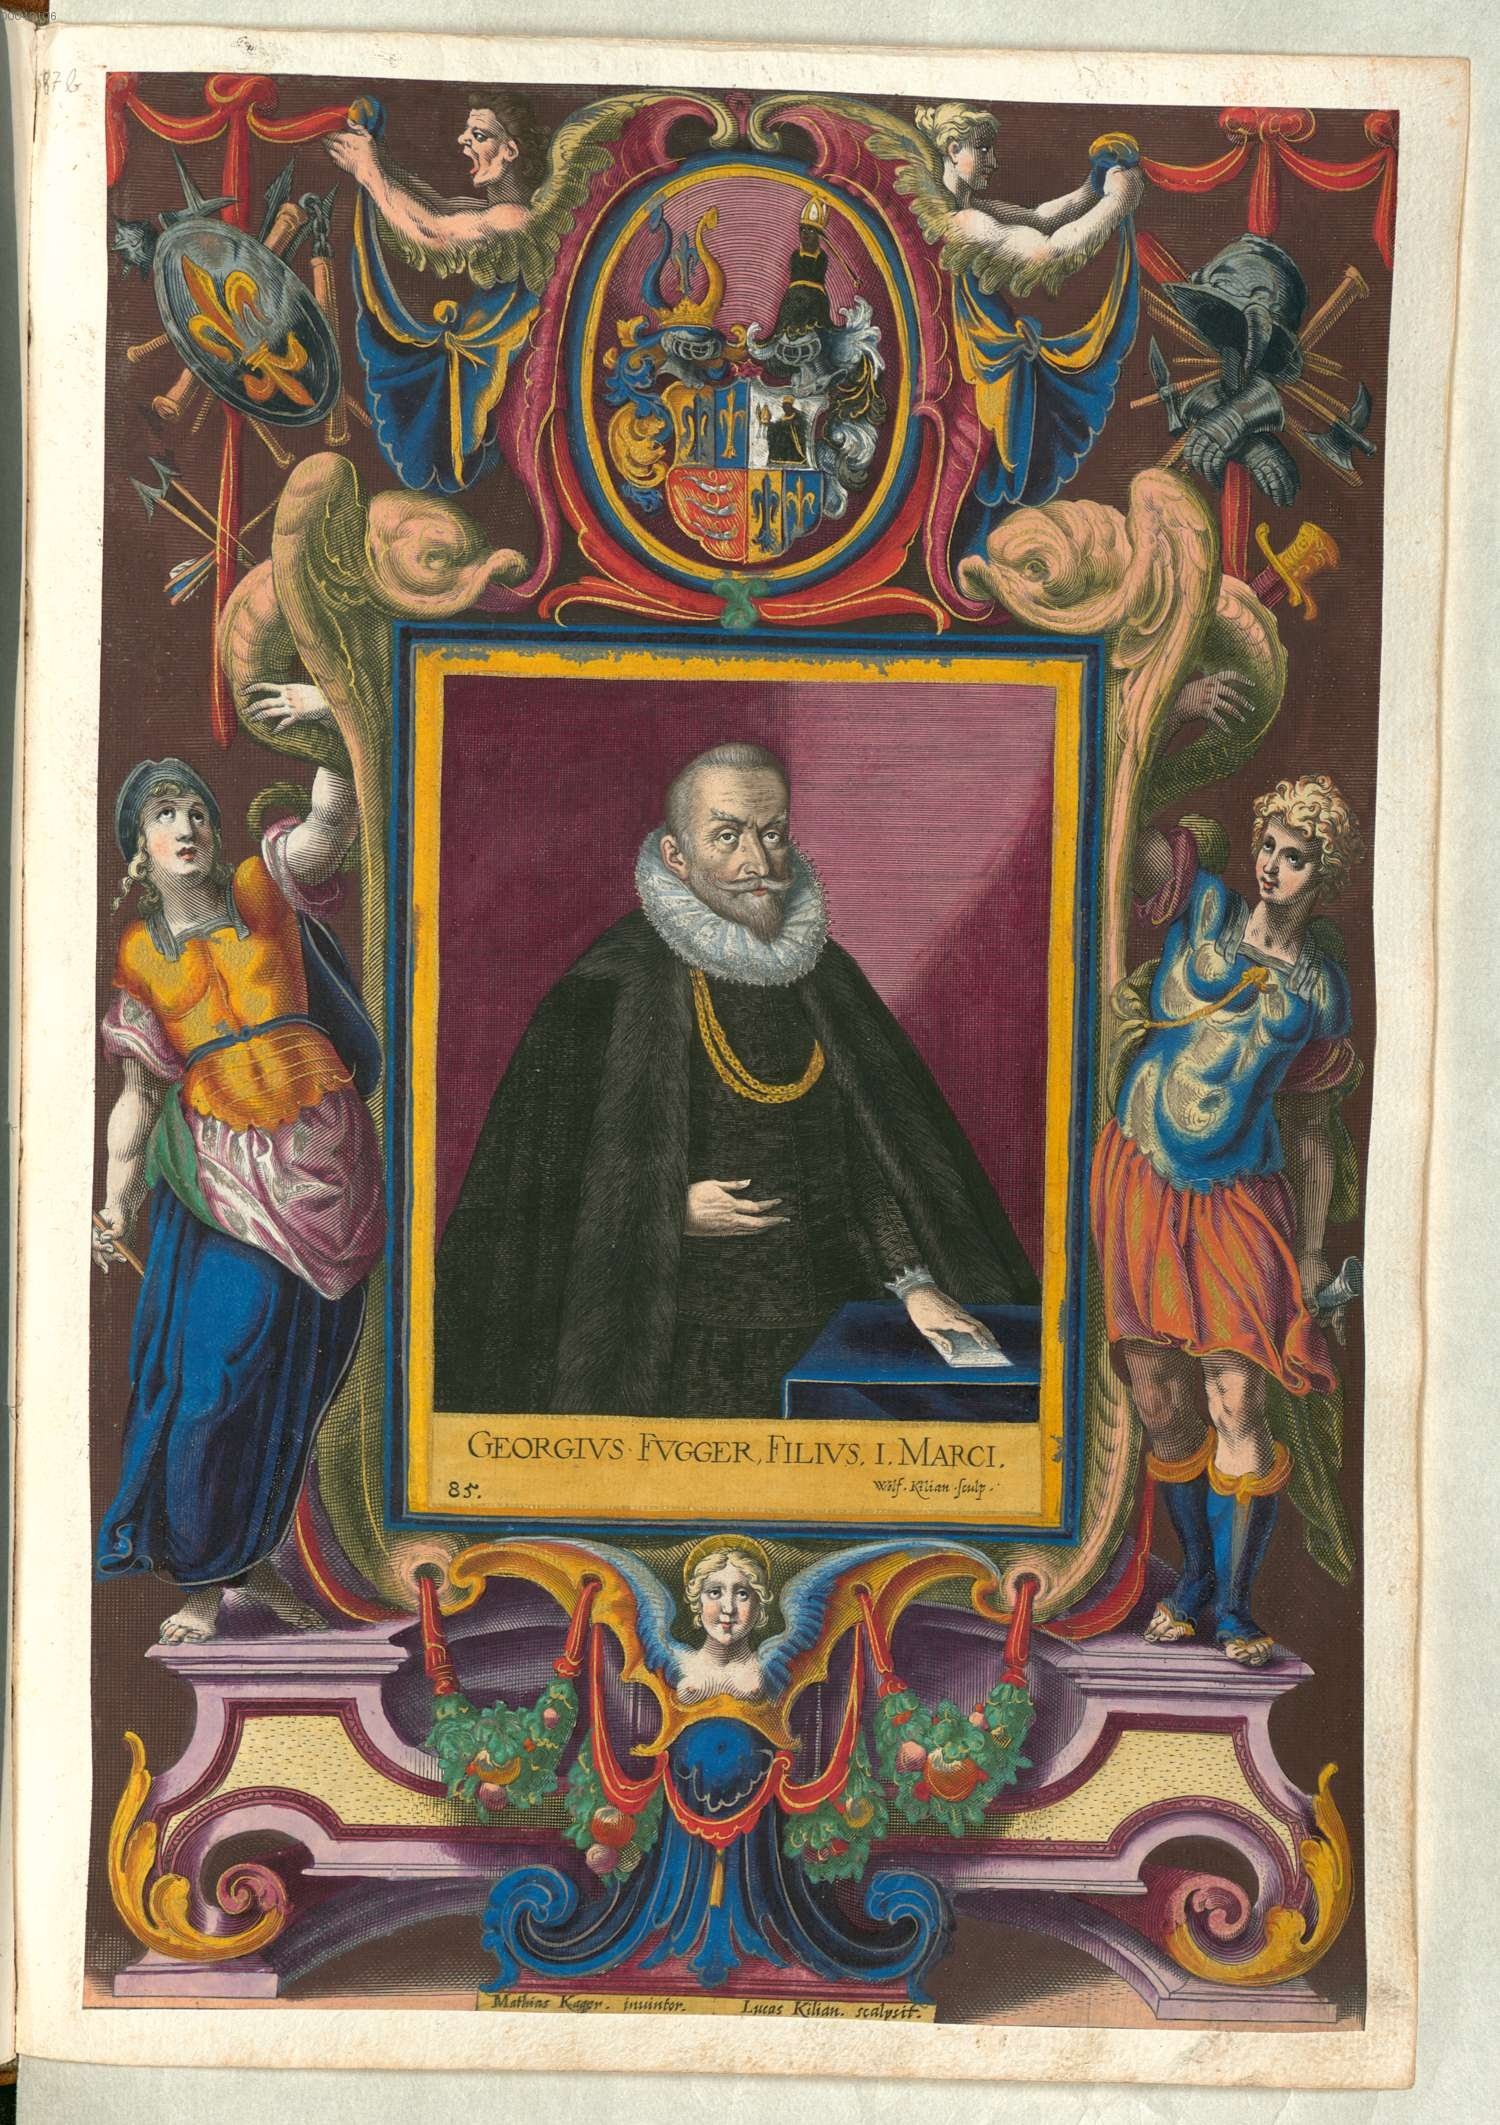 87 b
GEORGIVS · FVGGER, FILIVS. I. MARCI.
85. Wolf. Kilian. sculp.
Mathias Kager. inuintor. Lucas Kilian. scalpsit.